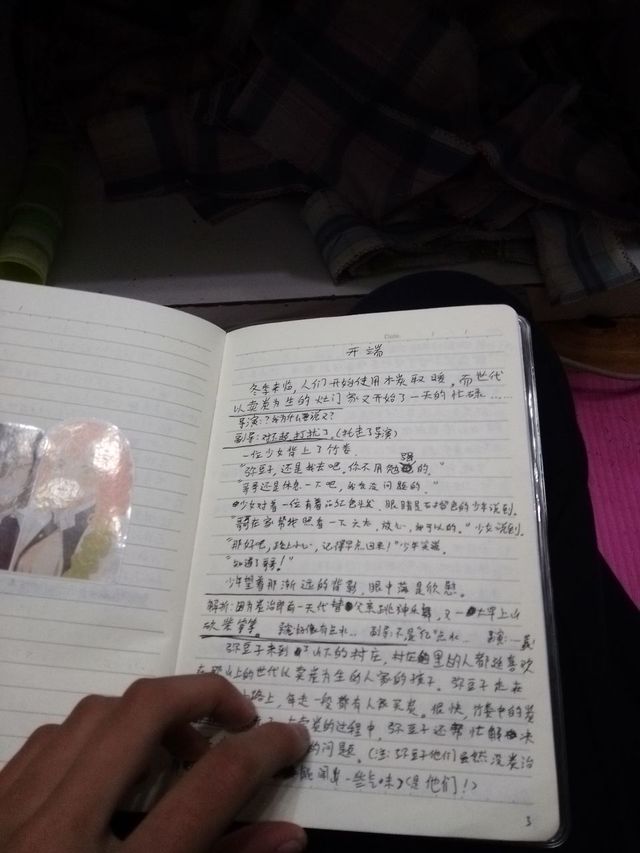 Date
开端
冬季来临,人们开始使用木炭取暖,而世代
以卖炭为生的灶门家又开始了一天的忙碌……
导演:?我为什么要说又?
副导:对不起,打扰了。(拖走了导演)
一位少女背上了竹娄。
"弥豆子,还是我去吧,你不用勉强的。"
"哥哥还是休息一下吧,我会没问题的。"
少女对着一位有着红色头发,眼睛是的少年说到。
"哥哥在家帮我照看一下六太,放心,我可以的。"少女说到。
"那好吧,路上小心,记得早点回来!"少年笑道。
"知道了哥哥!"
少年望着那渐远的背影,眼中满是欣慰。
解析:因为炭治郎前一天代替父亲跳神乐舞,又一大早上山
砍柴等等。 好像有点水… 副导:不是"亿"点水…
弥豆子来到山下的村庄,村庄里的人都挺喜欢
山上的世代以卖炭为生的人家的孩子。弥豆子走在
路上,每走一段都有人家买炭。很快,竹娄中的炭
卖炭的过程中,弥豆子还帮忙解决
的问题。(注:弥豆子他们虽然没炭治
能闻一些气味)(是他们!)
3